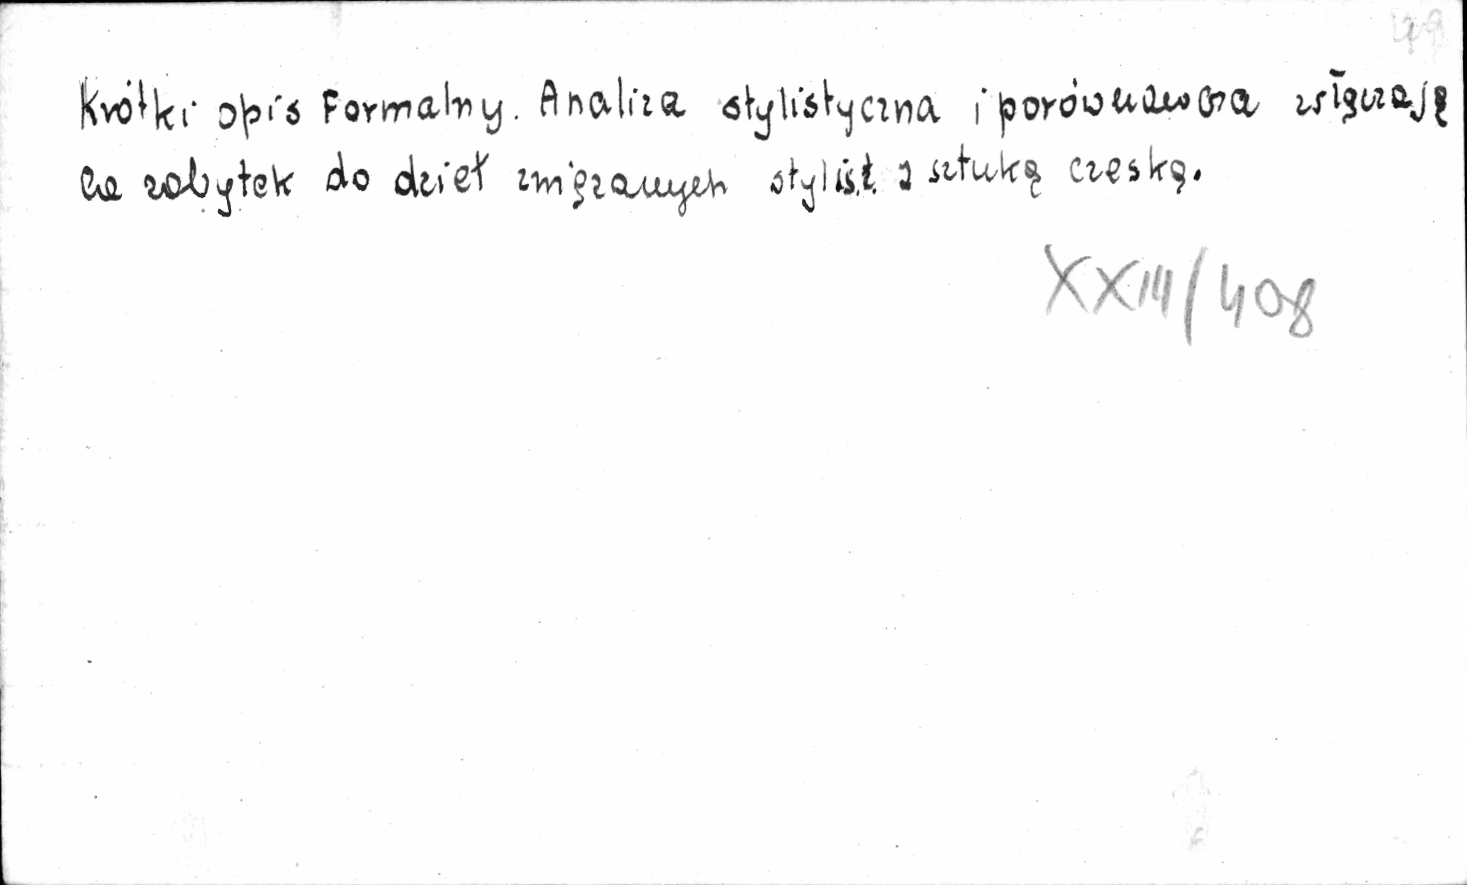 Krótki opis Formalny. Analiza stylistyczna i porównawcza włączają
ca zabytek do dzieł związanych stylist. z sztuką czeską.
XXIII/408